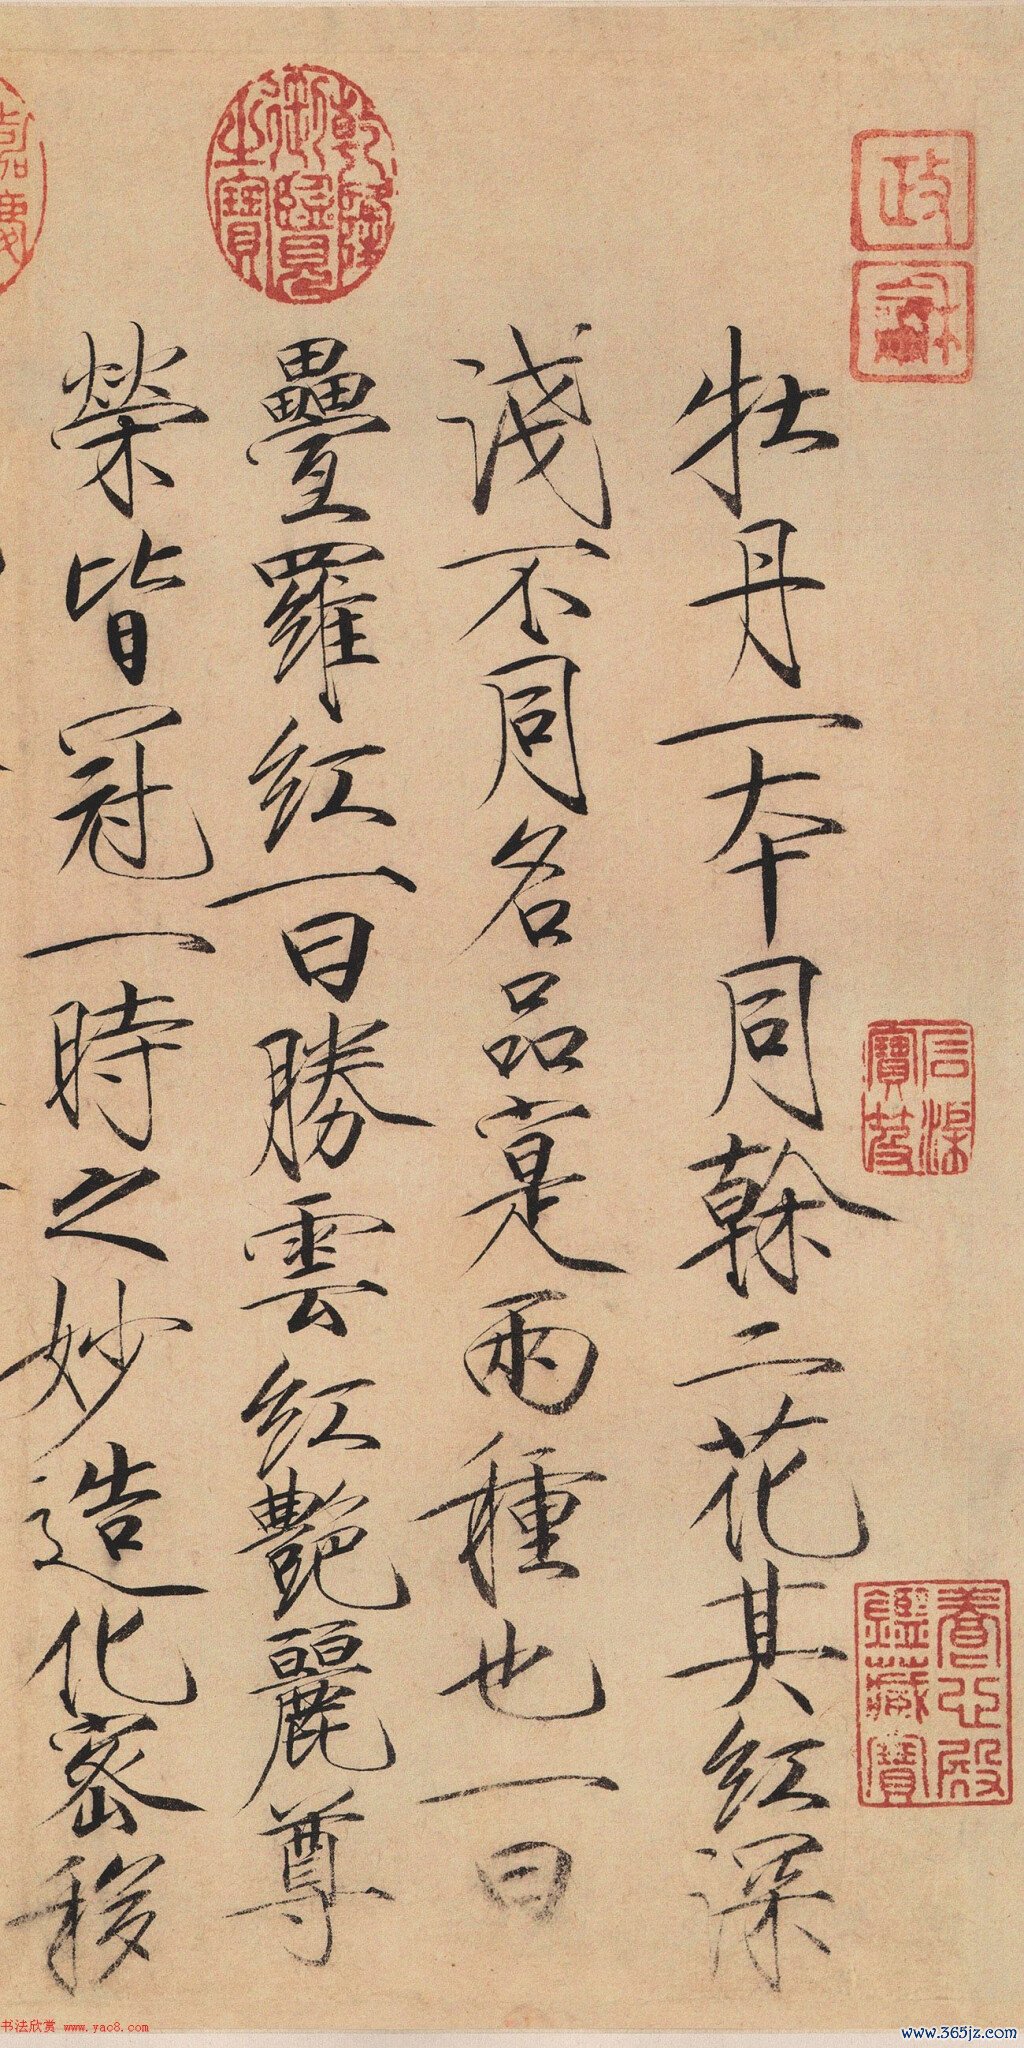 牡丹一本同幹二花其紅深
淺不同名品寔兩種也一曰
疊羅紅一曰勝雲紅艷麗尊
榮皆冠一時之妙造化密移
政
龢
信
寶
養心殿
鑑藏寶
乾隆
御覽
之寶
嘉慶
书法欣赏 www.yac8.com
www.365jz.com